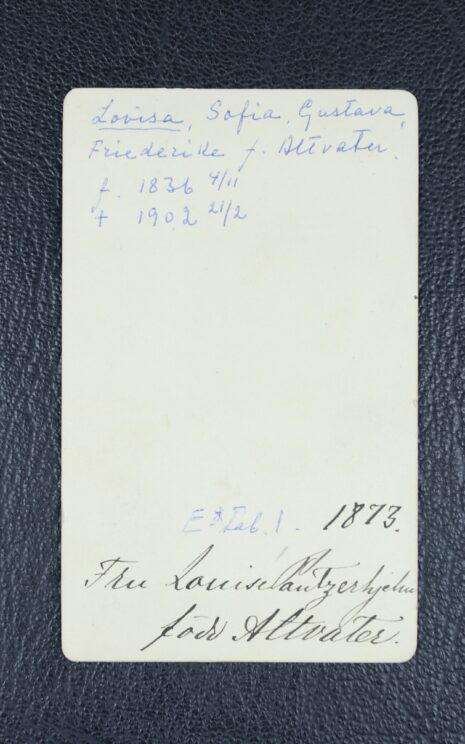 Lovisa, Sofia, Gustava,
Friederike f. Altvater.
f. 1836 4/11
+ 1902 21/2
E* Tab. 1. 1873.
Fru Louise Pantzerhjelm
född Altvater.